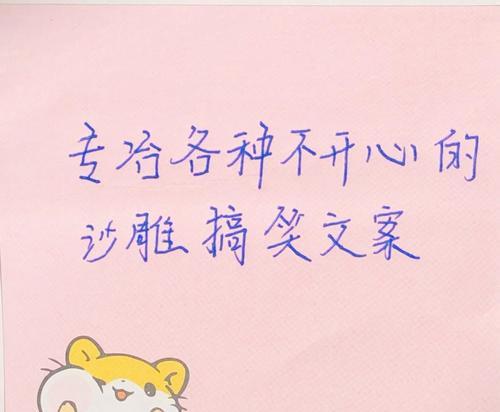 专治各种不开心的
沙雕搞笑文案